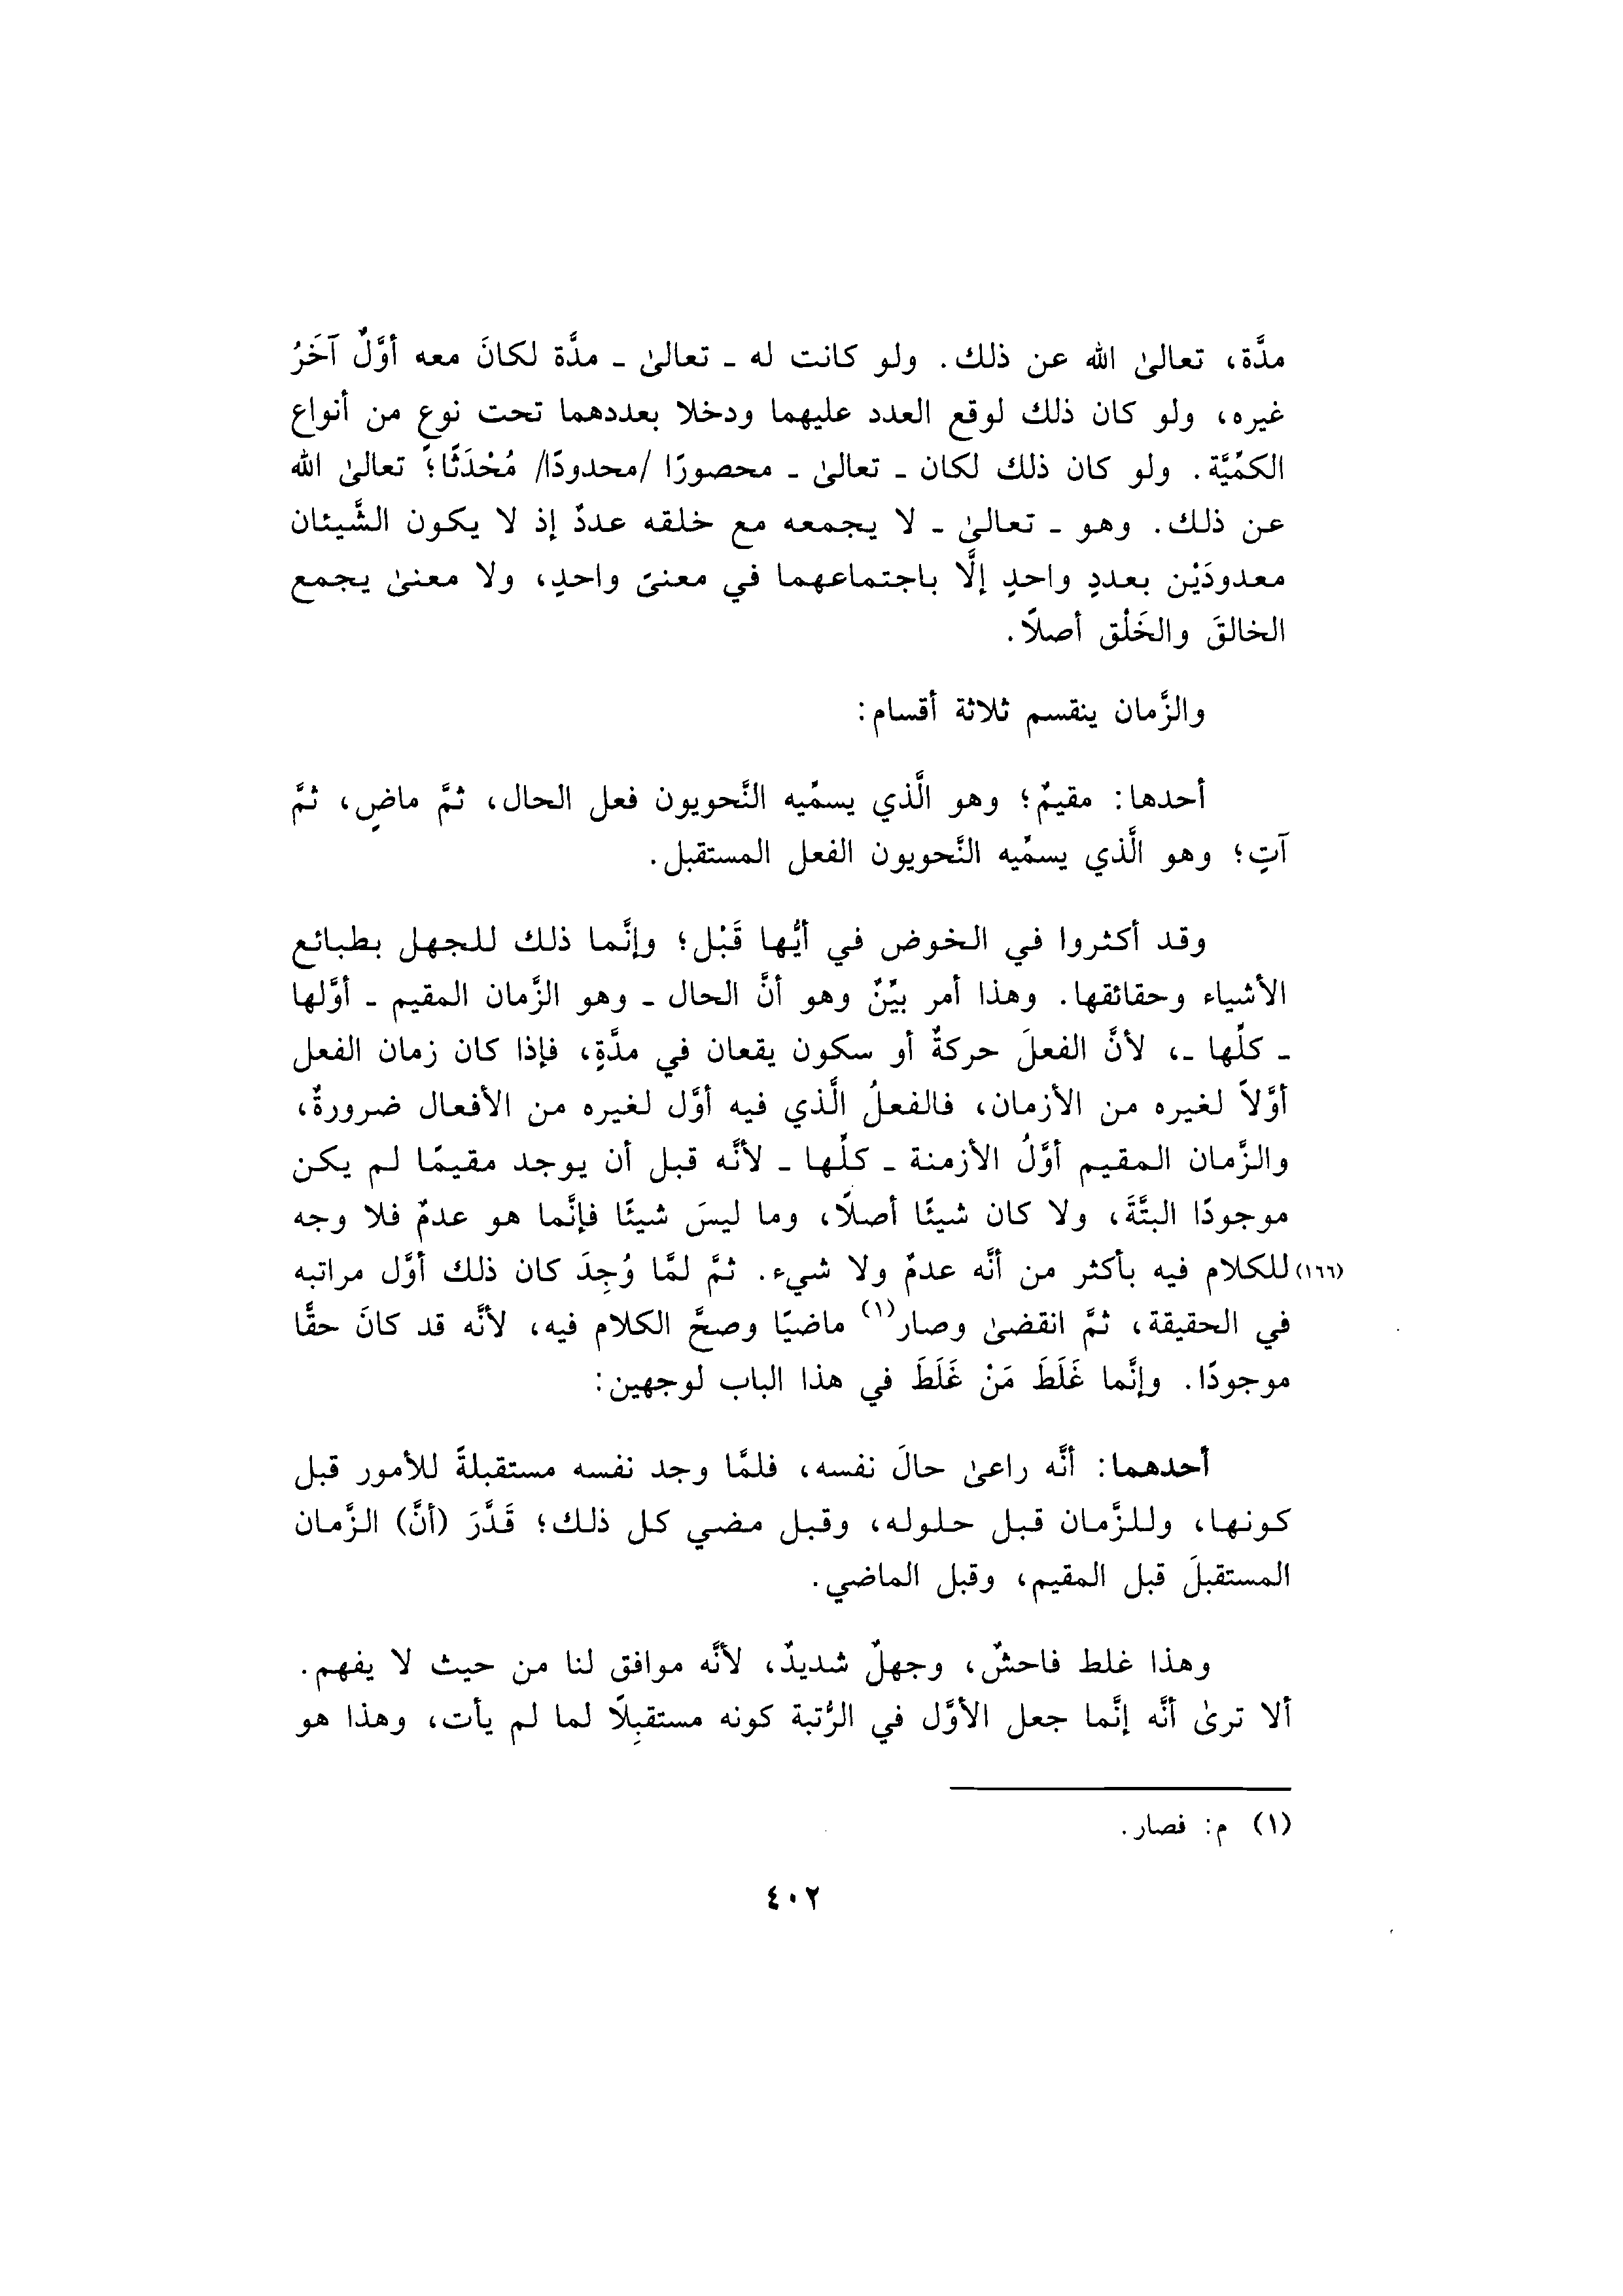 مدَّة، تعالىٰ الله عن ذلك. ولو كانت له ـ تعالىٰ ـ مدَّة لكانَ معه أوَّلٌ آخَرُ
غيره، ولو كان ذلك لوقع العدد عليهما ودخلا بعددهما تحت نوعٍ من أنواع
الكمِّيَّة. ولو كان ذلك لكان ـ تعالىٰ ـ محصورًا /محدودًا/ مُحْدَثًا؛ تعالىٰ الله
عن ذلك. وهو ـ تعالىٰ ـ لا يجمعه مع خلقه عددٌ إذ لا يكون الشَّيئان
معدودَيْن بعددٍ واحدٍ إلَّا باجتماعهما في معنىً واحدٍ، ولا معنىٰ يجمع
الخالقَ والخَلْق أصلًا.
والزَّمان ينقسم ثلاثة أقسام:
أحدها: مقيمٌ؛ وهو الَّذي يسمِّيه النَّحويون فعل الحال، ثمَّ ماضٍ، ثمَّ
آتٍ؛ وهو الَّذي يسمِّيه النَّحويون الفعل المستقبل.
وقد أكثروا في الخوض في أيُّها قَبْل؛ وإنَّما ذلك للجهل بطبائع
الأشياء وحقائقها. وهذا أمر بيِّنٌ وهو أنَّ الحال ـ وهو الزَّمان المقيم ـ أوَّلها
ـ كلِّها ـ، لأنَّ الفعلَ حركةٌ أو سكون يقعان في مدَّةٍ، فإذا كان زمان الفعل
أوَّلاً لغيره من الأزمان، فالفعلُ الَّذي فيه أوَّل لغيره من الأفعال ضرورةٌ،
والزَّمان المقيم أوَّلُ الأزمنة ـ كلِّها ـ لأنَّه قبل أن يوجد مقيمًا لم يكن
موجودًا البتَّةَ، ولا كان شيئًا أصلًا، وما ليسَ شيئًا فإنَّما هو عدمٌ فلا وجه
(١٦٦) للكلام فيه بأكثر من أنَّه عدمٌ ولا شيء. ثمَّ لمَّا وُجِدَ كان ذلك أوَّل مراتبه
في الحقيقة، ثمَّ انقضىٰ وصار(١) ماضيًا وصحَّ الكلام فيه، لأنَّه قد كانَ حقًّا
موجودًا. وإنَّما غَلَطَ مَنْ غَلَطَ في هذا الباب لوجهين:
أحدهما: أنَّه راعىٰ حالَ نفسه، فلمَّا وجد نفسه مستقبلةً للأمور قبل
كونها، وللزَّمان قبل حلوله، وقبل مضي كل ذلك؛ قَدَّرَ (أنَّ) الزَّمان
المستقبلَ قبل المقيم، وقبل الماضي.
وهذا غلط فاحشٌ، وجهلٌ شديدٌ، لأنَّه موافق لنا من حيث لا يفهم.
ألا ترىٰ أنَّه إنَّما جعل الأوَّل في الرُّتبة كونه مستقبِلًا لما لم يأت، وهذا هو
(١) م: فصار.
٤٠٢